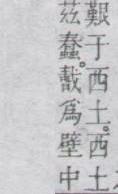 艱于西土。西土
茲蠢。爲壁中